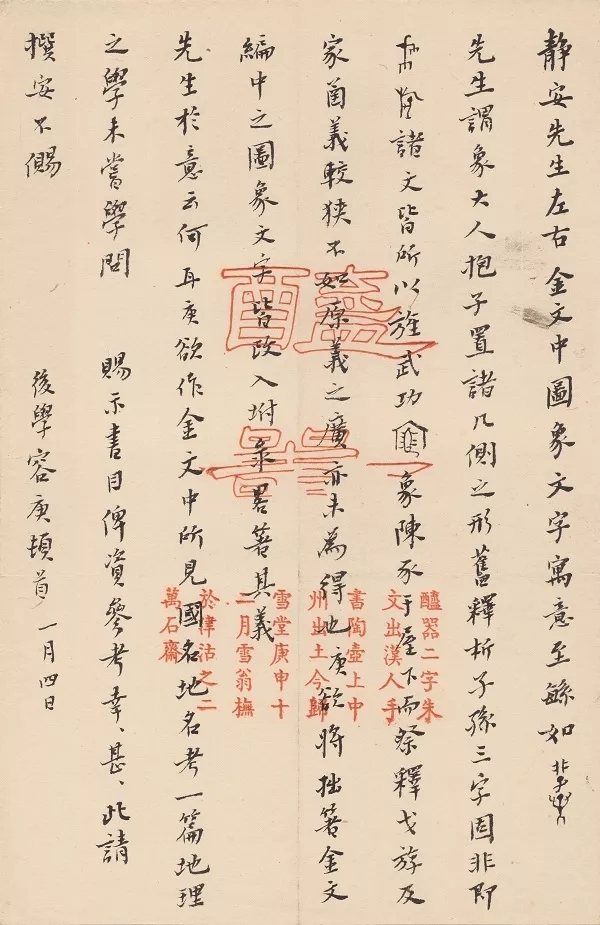 静安先生左右金文中圖象文字寓意至繇如
先生謂象大人抱子置諸几側之形舊釋析子孫三字固非即
諸文皆所以旌武功象陳豕于屋下而祭釋戈斿及
家圅義較狹不如原義之廣亦未為得也庚欲將拙箸金文
編中之圖象文字皆改入坿彔畧箸其義
先生於意云何耳庚欲作金文中所見國名地名考一篇地理
之學未嘗學問 賜示書目俾資參考幸、甚、此請
撰安不儩
後學容庚頓首 一月四日
醢器
二字朱
文出漢人手
書陶壺上中
州出土今歸
雪堂庚申十
二月雪翁橅
於津沽之二
萬石齋